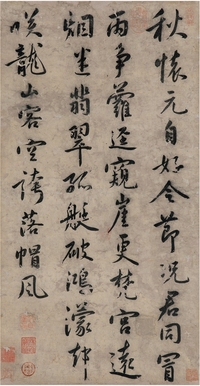 秋懷元自好令節況君同冒
雨爭蘿逕窺崖更梵宮遠
烟翡翠孤破鴻濛却
咲龍山客空誇落帽風